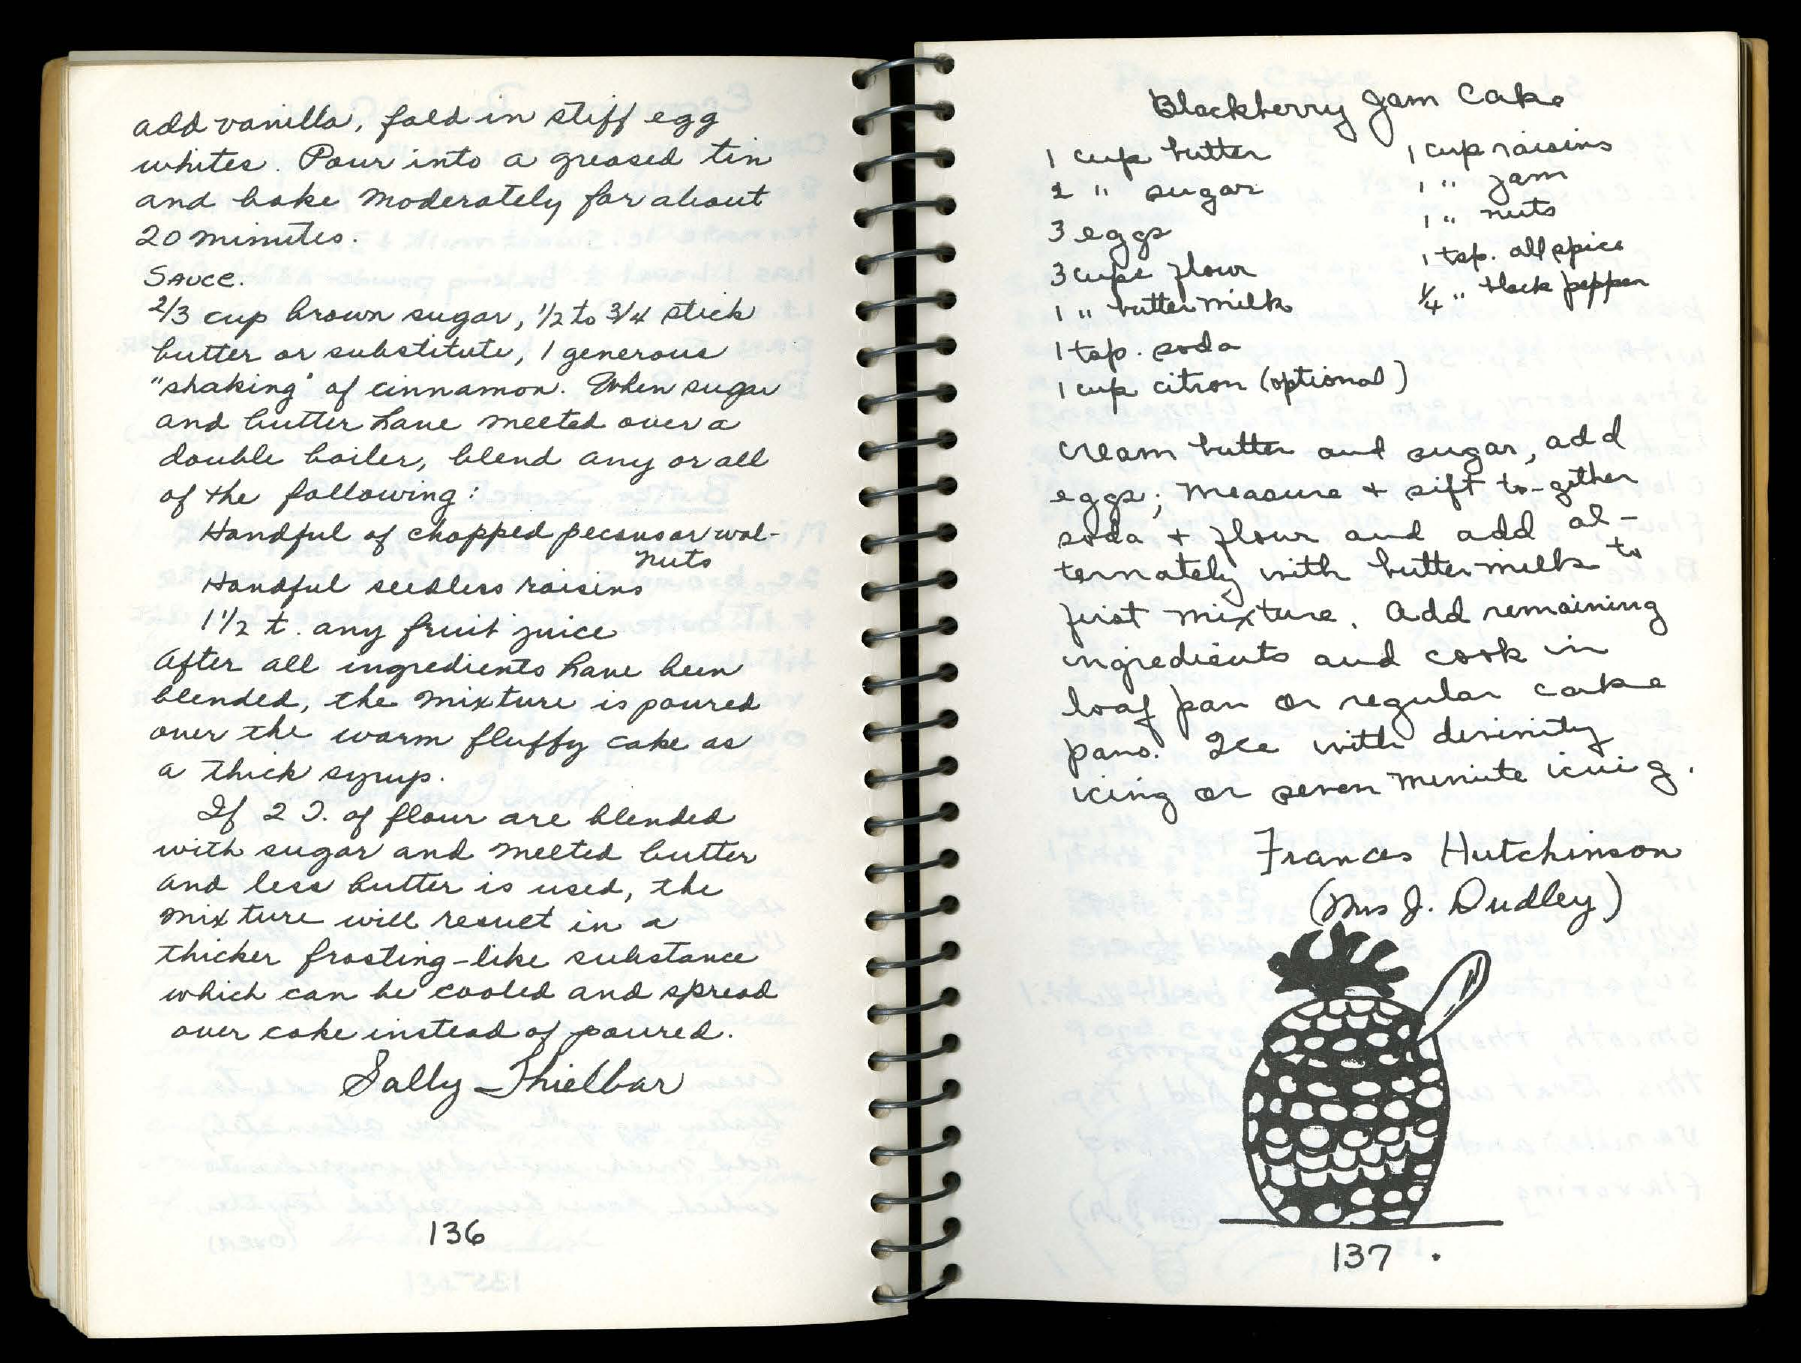 add vanilla, fold in stiff egg
whites. Pour into a greased tin
and bake moderately for about
20 minutes.
SAUCE.
2/3 cup brown sugar, 1/2 to 3/4 stick
butter or substitute, 1 generous
"shaking" of cinnamon. When sugar
and butter have melted over a
double boiler, blend any or all
of the following:
Handful of chopped pecans or wal-
nuts
Handful seedless raisins
1 1/2 t. any fruit juice
After all ingredients have been
blended, the mixture is poured
over the warm fluffy cake as
a thick syrup.
If 2 T. of flour are blended
with sugar and melted butter
and less butter is used, the
mixture will result in a
thicker frosting-like substance
which can be cooled and spread
over cake instead of poured.
Sally Thielbar
136
Blackberry Jam Cake
1 cup butter
2 " sugar
3 eggs
3 cups flour
1 " buttermilk
1 tsp. soda
1 cup citron (optional)
1 cup raisins
1 " jam
1 " nuts
1 tsp. allspice
1/4 " black pepper
Cream butter and sugar, add
eggs; measure + sift to-gether
soda + flour and add al-
ternately with buttermilk to
first mixture. Add remaining
ingredients and cook in
loaf pan or regular cake
pans. Ice with divinity
icing or seven minute icing.
Frances Hutchinson
(Mrs J. Dudley)
137